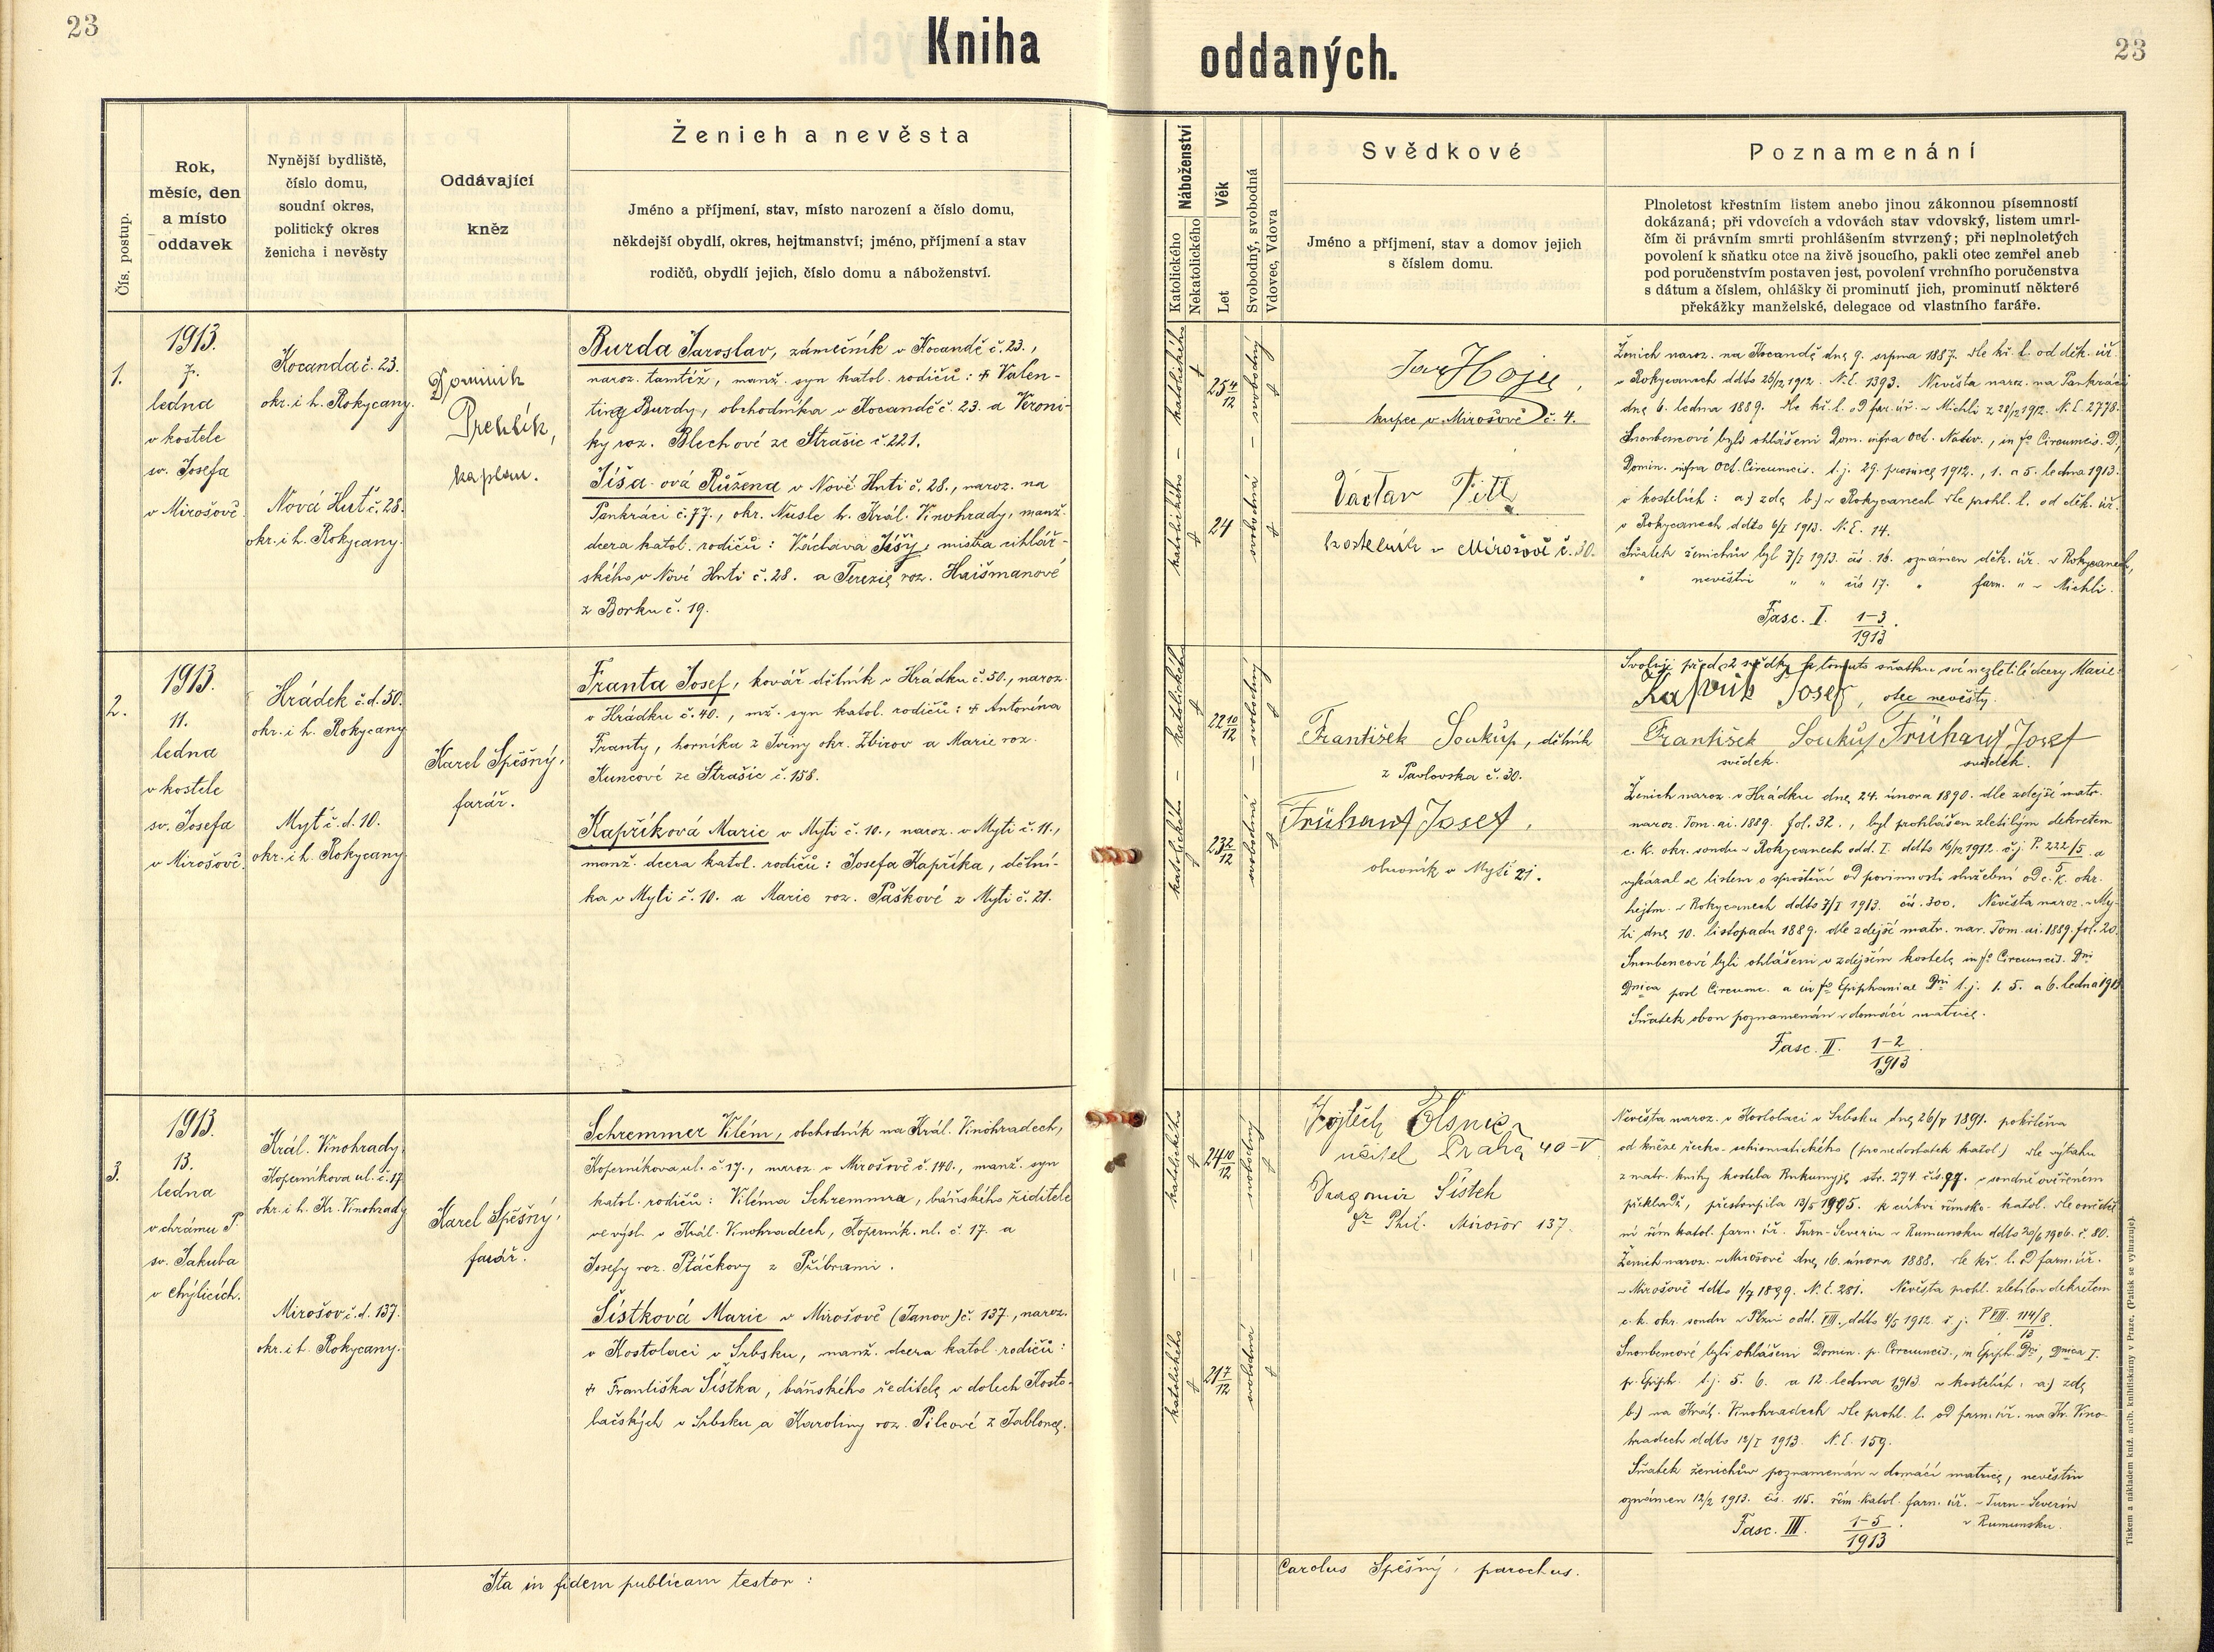 23
Kniha
oddaných.
23
Čís. postup.
Rok,
měsíc, den
a místo
oddavek
Nynější bydliště,
číslo domu,
soudní okres,
politický okres
ženicha i nevěsty
Oddávající
kněz
Ženich a nevěsta
Jméno a příjmení, stav, místo narození a číslo domu,
někdejší obydlí, okres, hejtmanství; jméno, příjmení a stav
rodičů, obydlí jejich, číslo domu a náboženství.
Náboženství
Katolického
Nekatolického
Věk
Let
Svobodný, svobodná
Vdovec, Vdova
Svědkové
Jméno a příjmení, stav a domov jejich
s číslem domu.
Poznamenání
Plnoletost křestním listem anebo jinou zákonnou písemností
dokázaná; při vdovcích a vdovách stav vdovský, listem umrl-
čím či právním smrti prohlášením stvrzený; při neplnoletých
povolení k sňatku otce na živě jsoucího, pakli otec zemřel aneb
pod poručenstvím postaven jest, povolení vrchního poručenstva
s dátum a číslem, ohlášky či prominutí jich, prominutí některé
překážky manželské, delegace od vlastního faráře.
1.
1913.
7.
ledna
v kostele
sv. Josefa
v Mirošově.
Kocanda č. 23.
okr. i h. Rokycany.
Nová Huť č. 28.
okr. i h. Rokycany.
Dominik
kaplan.
Burda Jaroslav, zámečník v Kocandě č. 23.,
naroz. tamtéž, manž. syn katol. rodičů: † Valen-
tina Burdy, obchodníka v Kocandě č. 23. a Veroni-
ky roz. Blechové ze Strašic č. 221.
Jíša-ová Růžena v Nové Huti č. 28., naroz. na
Pankráci č. 77., okr. Nusle h. Král. Vinohrady, manž.
dcera katol. rodičů: Václava Jíšy, mistra cihlář-
ského v Nové Huti č. 28. a Terezie roz. Haišmanové
z Borku č. 19.
katolického – katolického
25 4/12
24
svobodný – svobodná
kupec v Mirošově č. 4.
Václav
kostelník v Mirošově č. 30.
Ženich naroz. na Kocandě dne 9. srpna 1887. dle kř. l. od děk. úř.
v Rokycanech ddto 26/12 1912. N. E. 1393. Nevěsta naroz. na Pankráci
dne 6. ledna 1889. dle kř. l. od far. úř. v Michli z 28/12 1912. N. E. 2778.
Snoubencové byli ohlášeni Dom. infra Oct. Nativ., in fo Circumcis. D.,
Domin. infra Oct. Circumcis. t. j. 29. prosince 1912., 1. a 5. ledna 1913.
v kostelích: a) zde b) v Rokycanech dle prohl. l. od děk. úř.
v Rokycanech ddto 6/I 1913. N. E. 14.
Sňatek ženichův byl 7/I 1913. čís. 16. oznámen děk. úř. v Rokycanech,
" nevěstin " " čís 17. " farn. " v Michli.
Fasc. I. 1-3/1913.
2.
1913.
11.
ledna
v kostele
sv. Josefa
v Mirošově.
Hrádek č. d. 50.
okr. i h. Rokycany
Myť č. d. 10.
okr. i h. Rokycany
Karel Spěšný,
farář.
Franta Josef, kovář dělník v Hrádku č. 50., naroz.
v Hrádku č. 40., mž. syn katol. rodičů: † Antonína
Franty, horníka z Jviny okr. Zbirov a Marie roz.
Kuncové ze Strašic č. 158.
Kapříková Marie v Myti č. 10., naroz. v Myti č. 11.,
manž. dcera katol. rodičů: Josefa Kapříka, dělní-
ka v Myti č. 10. a Marie roz. Paškové z Myti č. 21.
katolického – katolického
22 10/12
23 2/12
svobodný – svobodná
František Soukup, dělník
z Pavlovska č. 30.
Frühauf Josef,
obuvník v Mytí 21.
Svoluji před 2 svědky k tomuto sňatku své nezletilé dcery Marie.
Kapřík Josef, otec nevěsty.
František Soukup Frühauf Josef
svědek. svědek.
Ženich naroz. v Hrádku dne 24. února 1890. dle zdejší matr.
naroz. Tom. ai. 1889. fol. 32., byl prohlášen zletilým dekretem
c. k. okr. soudu v Rokycanech odd. I. ddto 16/12 1912. č. j. P. 222/5 a
vykázal se listem o sproštění od povinnosti služební od c. k. okr.
hejtm. v Rokycanech ddto 7/I 1913. čís. 300. Nevěsta naroz. v My-
ti dne 10. listopadu 1889. dle zdejší matr. nar. Tom. ai. 1889. fol. 20.
Snoubencové byli ohlášeni v zdejším kostele in fo Circumcis. Dni
Dnica post Circumc. a in fo Epiphaniae Dni t. j. 1. 5. a 6. ledna 1913.
Sňatek obou poznamenán v domácí matrice.
Fasc. II. 1-2/1913.
3.
1913.
13.
ledna
v chrámu P.
sv. Jakuba
v
Král. Vinohrady
Koperníkova ul. č. 17
okr. i h. Kr. Vinohrady
Mirošov č. d. 137.
okr. i h. Rokycany.
Karel Spěšný,
farář.
Schremmer Vilém, obchodník na Král. Vinohradech,
Koperníkova ul. č. 17., naroz. v Mirošově č. 140., manž. syn
katol. rodičů: Viléma Schremmra, báňského ředitele
ve výsl. v Král. Vinohradech, Koperník. ul. č. 17. a
Josefy roz. Ptáčkovy z Příbrami.
Šístková Marie v Mirošově (Janov) č. 137, naroz.
v Kostolaci v Srbsku, manž. dcera katol. rodičů:
† Františka Šístka, báňského ředitele v dolech Kosto-
lačských v Srbsku a Karoliny roz. Pilcové z Jablonce.
katolického – katolického
24 10/12
21 7/12
svobodný – svobodná
Vojtěch Elsnic
učitel Praha 40-V
Dragomir Šístek
Dr Phil. Mirošov 137.
Nevěsta naroz. v Kostolaci v Srbsku dne 26/V 1891. pokřtěna
od kněze řecko-schismatického (pro nedostatek katol.) dle výtahu
z matr. knihy kostela str. 274. čís. 97. v soudně ověřeném
překladě, přestoupila 13/5 1905. k církvi římsko-katol. dle osvědče
ní řím katol. farn. úř. Turn-Severin v Rumunsku ddto 20/6 1906. č. 80.
Ženich naroz. v Mirošově dne 16. února 1888. dle kř. l. od farn. úř.
v Mirošově ddto 1/7 1899. N. E. 281. Nevěsta prohl. zletilou dekretem
c. k. okr. soudu v Plzni odd. VIII. ddto 1/5 1912. č. j. P VIII. 114/8/13.
Snoubencové byli ohlášeni Domin. p. Circumcis., in Epiph. Dni, Dnica I.
p. Epiph. t. j. 5. 6. a 12. ledna 1913. v kostelích: a) zde
b) na Král. Vinohradech dle prohl. l. od farn. úř. na Kr. Vino-
hradech ddto 12/I 1913. N. E. 159.
Sňatek ženichův poznamenán v domácí matrice, nevěstin
oznámen 12/2 1913. čís. 115. řím. katol. farn. úř. v Turn-Severin
v Rumunsku.
Fasc. III. 1-5/1913.
Ita in fidem publicam testor:
Carolus Spěšný, parochus.
Tiskem a nákladem kníž. arcib. knihtiskárny v Praze. (Patisk se vyhrazuje).